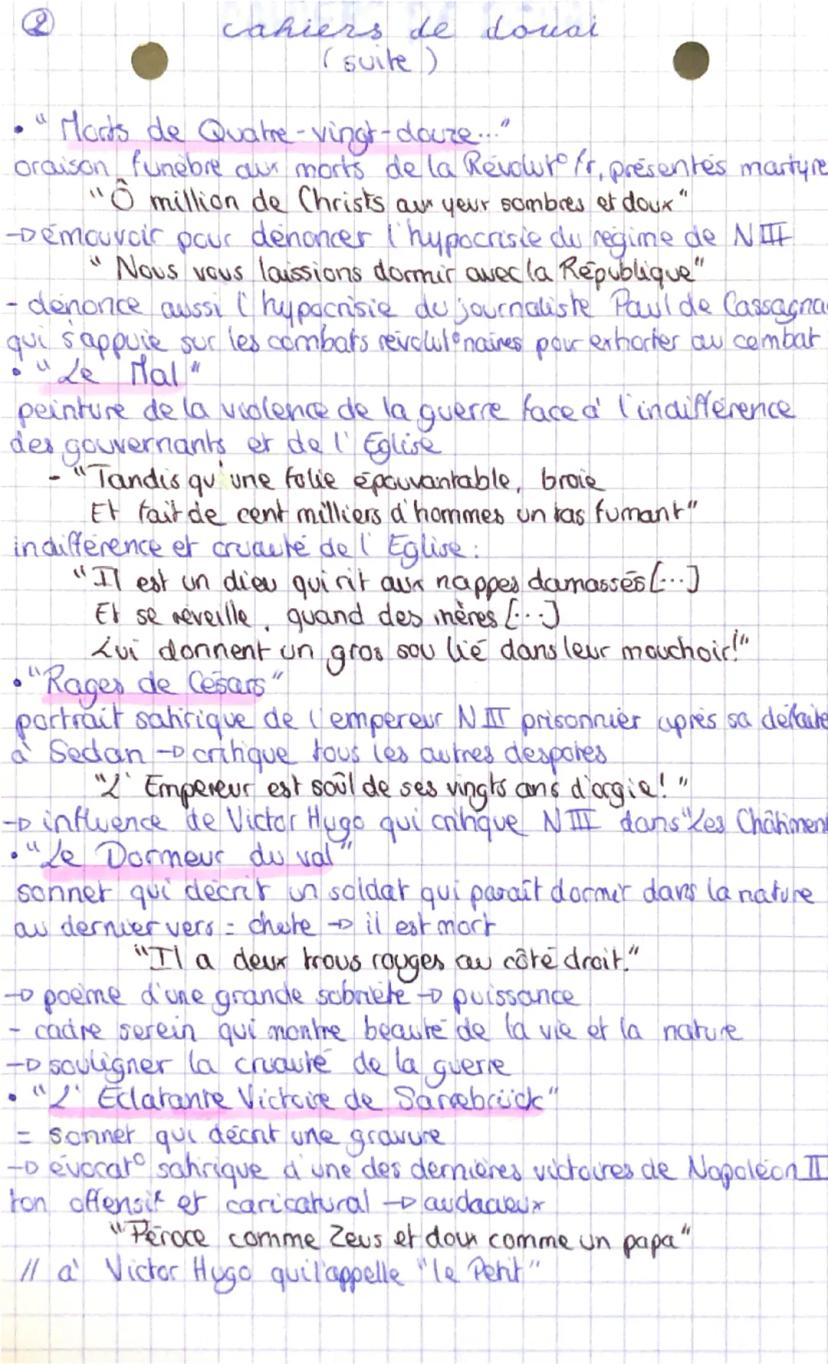 ②
cahiers de douai
(suite)
• "Morts de Quatre-vingt-douze..."
oraison funèbre aux morts de la Révolut° fr, présentés martyre
"Ô million de Christs aux yeux sombres et doux"
→ émouvoir pour dénoncer l'hypocrisie du régime de N III
"Nous vous laissions dormir avec la République"
- dénonce aussi l'hypocrisie du journaliste Paul de Cassagna
qui s'appuie sur les combats révolut°naires pour exhorter au combat
• "Le Mal"
peinture de la violence de la guerre face à l'indifférence
des gouvernants et de l'Eglise
- "Tandis qu'une folie épouvantable, broie
Et fait de cent milliers d'hommes un tas fumant"
indifférence et cruauté de l'Eglise :
"Il est un dieu qui rit aux nappes damassés [...]
Et se réveille, quand des mères [...]
Lui donnent un gros sou lié dans leur mouchoir!"
• "Rages de Césars"
portrait satirique de l'empereur N III prisonnier après sa défaite
à Sedan → critique tous les autres despotes
"L'Empereur est soûl de ses vingts ans d'orgie!"
→ influence de Victor Hugo qui critique N III dans "Les Châtiment
• "Le Dormeur du val"
sonnet qui décrit un soldat qui paraît dormir dans la nature
au dernier vers = chute → il est mort
"Il a deux trous rouges au côté droit."
→ poème d'une grande sobriété → puissance
- cadre serein qui montre beauté de la vie et la nature
→ souligner la cruauté de la guerre
• "L'Eclatante Victoire de Sarrebrück"
= sonnet qui décrit une gravure
→ évocat° satirique d'une des dernières victoires de Napoléon II
ton offensif et caricatural → audacieux
"Féroce comme Zeus et doux comme un papa"
// à Victor Hugo qui l'appelle "le Petit"